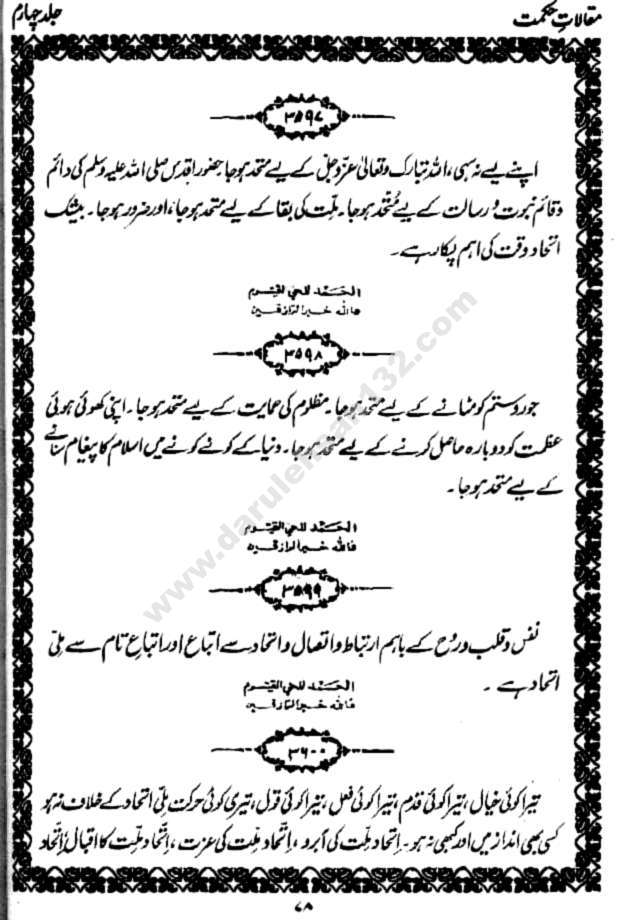 مقالاتِ حکمت
جلد چہارم
۳۵۹۷
اپنے لیے نہ سہی، اللہ تبارک وتعالیٰ عزّوجلّ کے لیے متحد ہوجا۔ حضور اقدس صلی اللہ علیہ وسلم کی دائم
وقائم نبوت و رسالت کے لیے مُتّحد ہوجا۔ ملّت کی بقا کے لیے متحد ہوجا، اور ضرور ہوجا۔ بیشک
اتحاد وقت کی اہم پکار ہے۔
الحمد للحی القیوم
فاللہ خیر الرازقین
۳۵۹۸
جور و ستم کو مٹانے کے لیے متحد ہوجا۔ مظلوم کی حمایت کے لیے متحد ہوجا۔ اپنی کھوئی ہوئی
عظمت کو دوبارہ حاصل کرنے کے لیے متحد ہوجا۔ دنیا کے کونے کونے میں اسلام کا پیغام سُنانے
کے لیے متحد ہوجا۔
الحمد للحی القیوم
فاللہ خیر الرازقین
۳۵۹۹
نفس و قلب و روح کے باہم ارتباط و اتصال و اتحاد سے اتباع اور اتباعِ تام سے ملّی
اتحاد ہے۔
الحمد للحی القیوم
فاللہ خیر الرازقین
۳۶۰۰
تیرا کوئی خیال، تیرا کوئی قدم، تیرا کوئی فعل، تیرا کوئی قول، تیری کوئی حرکت ملّی اتحاد کے خلاف نہ ہو
کسی بھی انداز میں اور کبھی نہ ہو۔ اتحاد ملّت کی آبرو، اتّحاد ملّت کی عزت، اتّحاد ملّت کا اقبال، اتّحاد
۷۸
www.darulehsan132.com